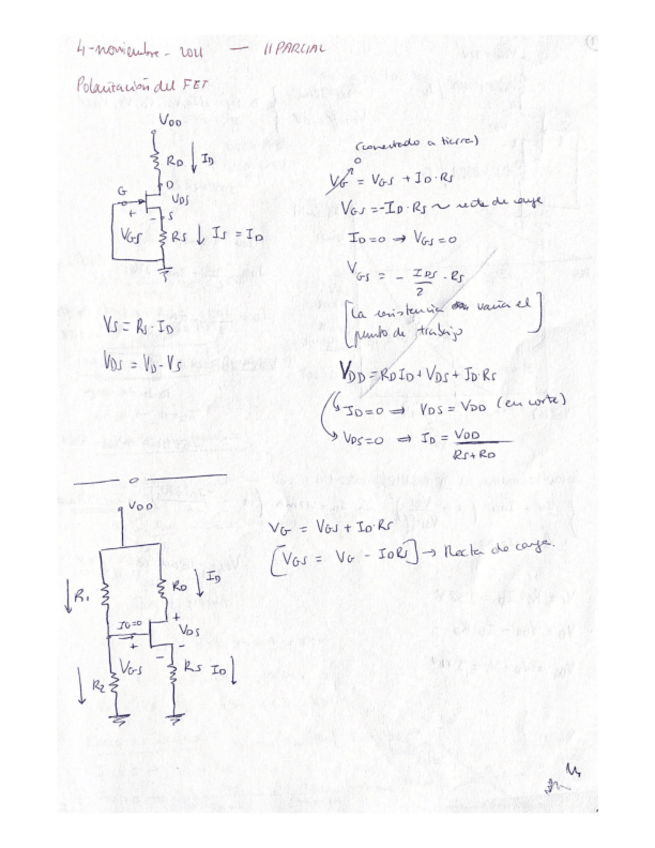 4-noviembre-2021 — II PARCIAL
Polarización del FET
VDD
RD ↓ ID
D
G
VDS
+ - S
VGS
RS ↓ IS = ID
VS = RS·ID
VDS = VD-VS
(conectado a tierra)
0
VG = VGS + ID·RS
VGS = -ID·RS ~ recta de carga
ID=0 → VGS=0
VGS = - IDS/2 · RS
[La resistencia varía el
punto de trabajo]
VDD = RDID + VDS + ID·RS
ID=0 ⇒ VDS = VDD (en corte)
VDS=0 ⇒ ID = VDD/RS+RD
VDD
↓ R1
RD ↓ ID
IG=0
+
VDS
+
-
-
VGS
↓ R2
RS ID ↓
VG = VGS + ID·RS
[VGS = VG - IDRS] → Recta de carga.